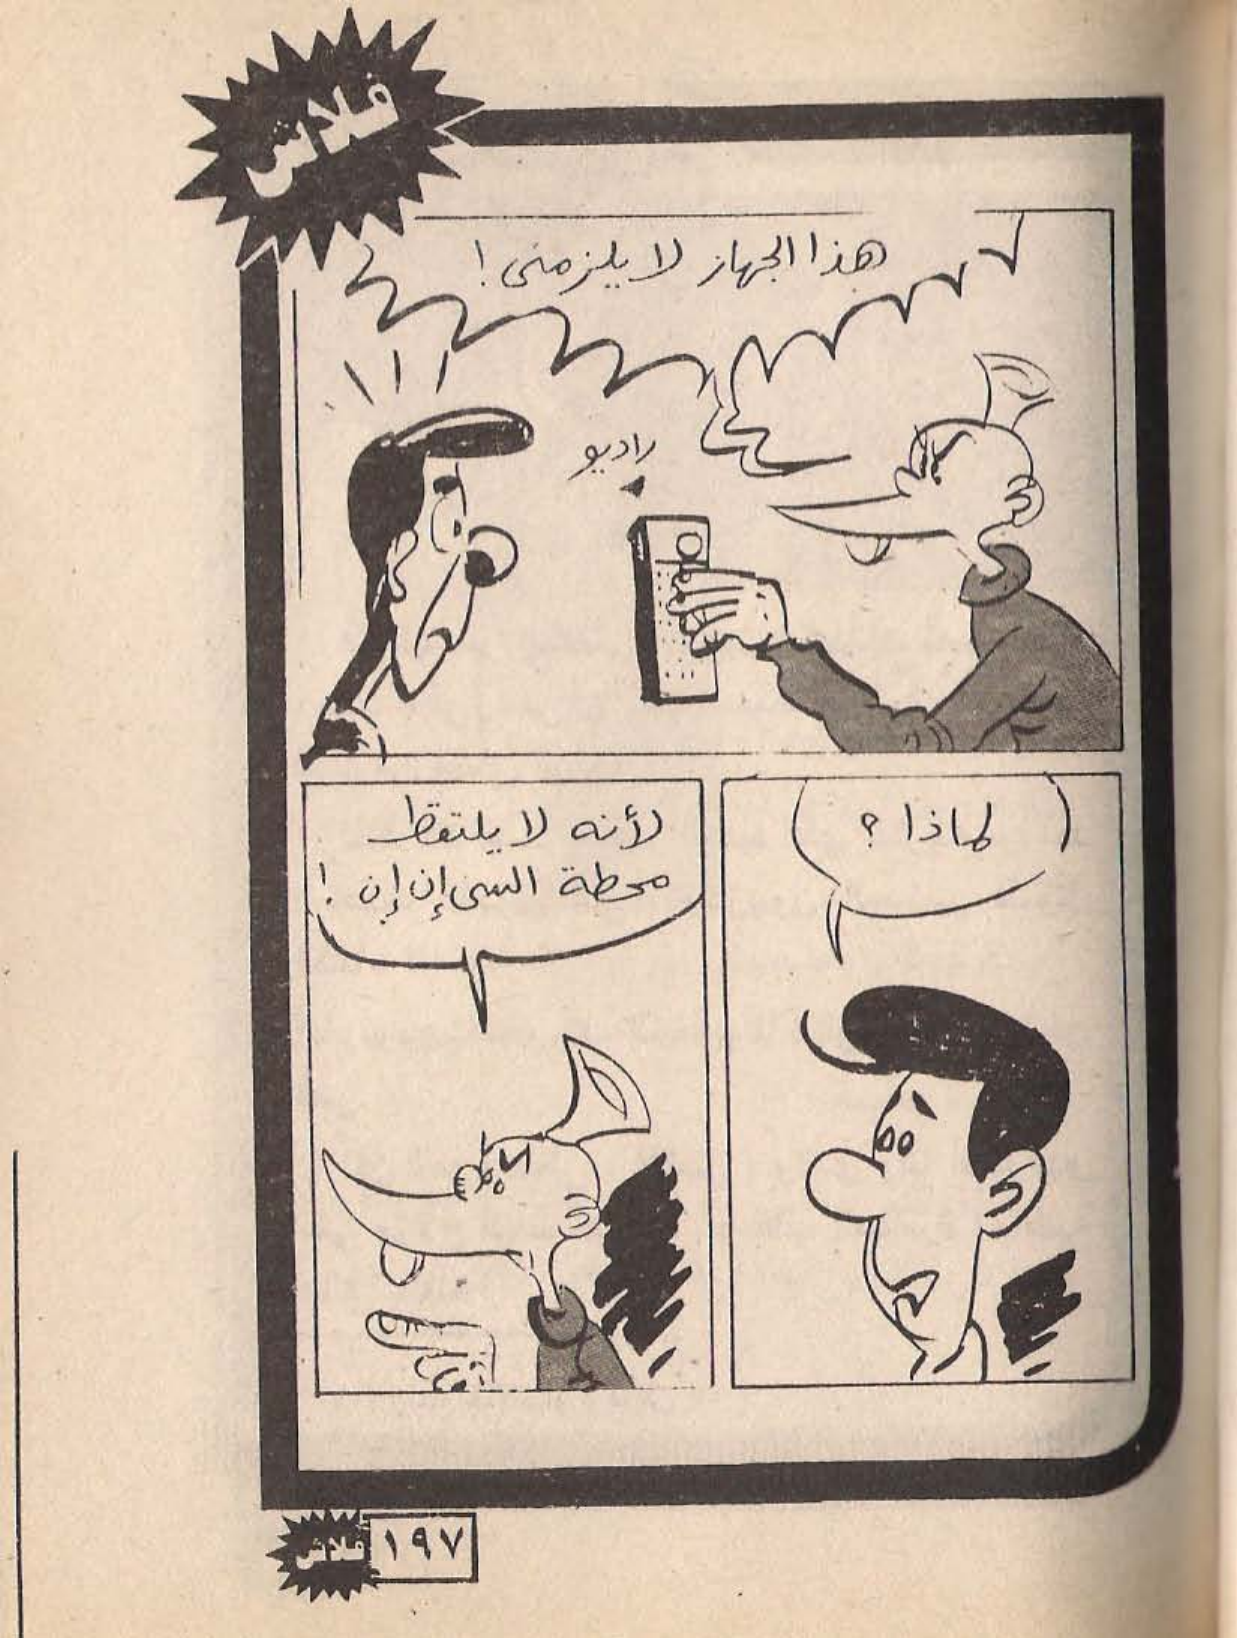 فلاش
هذا الجهاز لا يلزمنى !
راديو
لماذا ؟
لأنه لا يلتقط
محطة السى إن إن !
فلاش
١٩٧